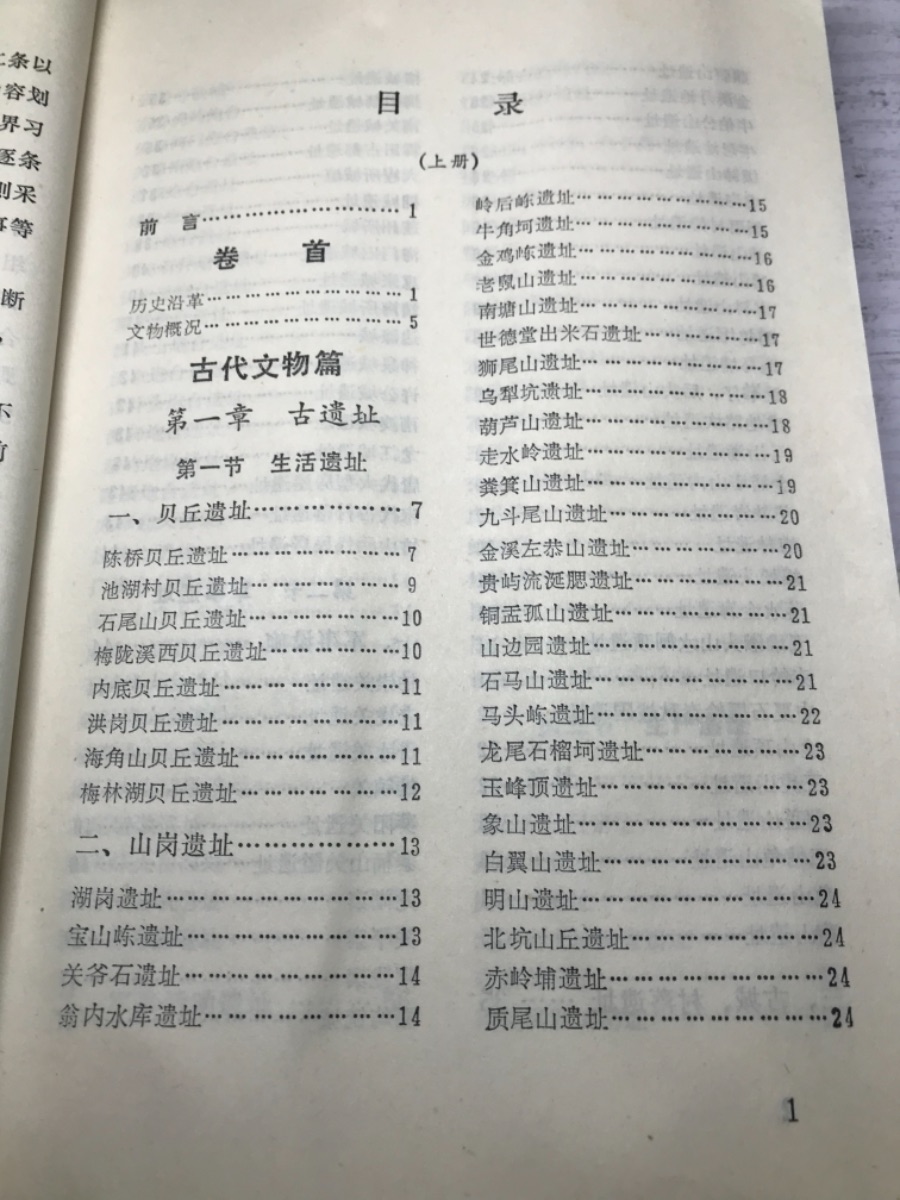 二条以
容划
界习
逐条
则采
事等
断
不
前
目 录
(上册)
前 言…………………………1
卷 首
历史沿革…………………………1
文物概况…………………………5
古代文物篇
第一章 古遗址
第一节 生活遗址
一、贝丘遗址………………7
陈桥贝丘遗址……………………7
池湖村贝丘遗址…………………9
石尾山贝丘遗址…………………10
梅陇溪西贝丘遗址………………10
内底贝丘遗址……………………11
洪岗贝丘遗址……………………11
海角山贝丘遗址…………………11
梅林湖贝丘遗址…………………12
二、山岗遗址………………13
湖岗遗址…………………………13
宝山崠遗址………………………13
关爷石遗址………………………14
翁内水库遗址……………………14
岭后崠遗址………………………15
牛角坷遗址………………………15
金鸡崠遗址………………………16
老鼠山遗址………………………16
南塘山遗址………………………17
世德堂出米石遗址………………17
狮尾山遗址………………………17
乌犁坑遗址………………………18
葫芦山遗址………………………18
走水岭遗址………………………19
粪箕山遗址………………………19
九斗尾山遗址……………………20
金溪左恭山遗址…………………20
贵屿流涎腮遗址…………………21
铜盂孤山遗址……………………21
山边园遗址………………………21
石马山遗址………………………21
马头崠遗址………………………22
龙尾石榴坷遗址…………………23
玉峰顶遗址………………………23
象山遗址…………………………23
白翼山遗址………………………23
明山遗址…………………………24
北坑山丘遗址……………………24
赤岭埔遗址………………………24
质尾山遗址………………………24
1